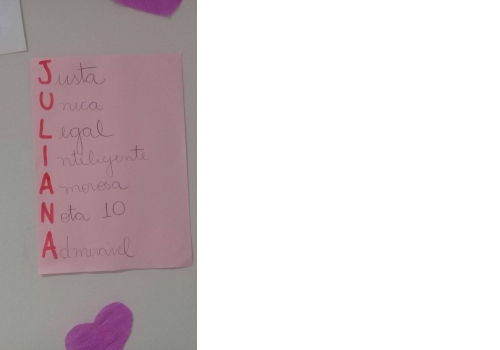 Justa
Unica
Legal
Inteligente
Amorosa
Neta 10
Admirável